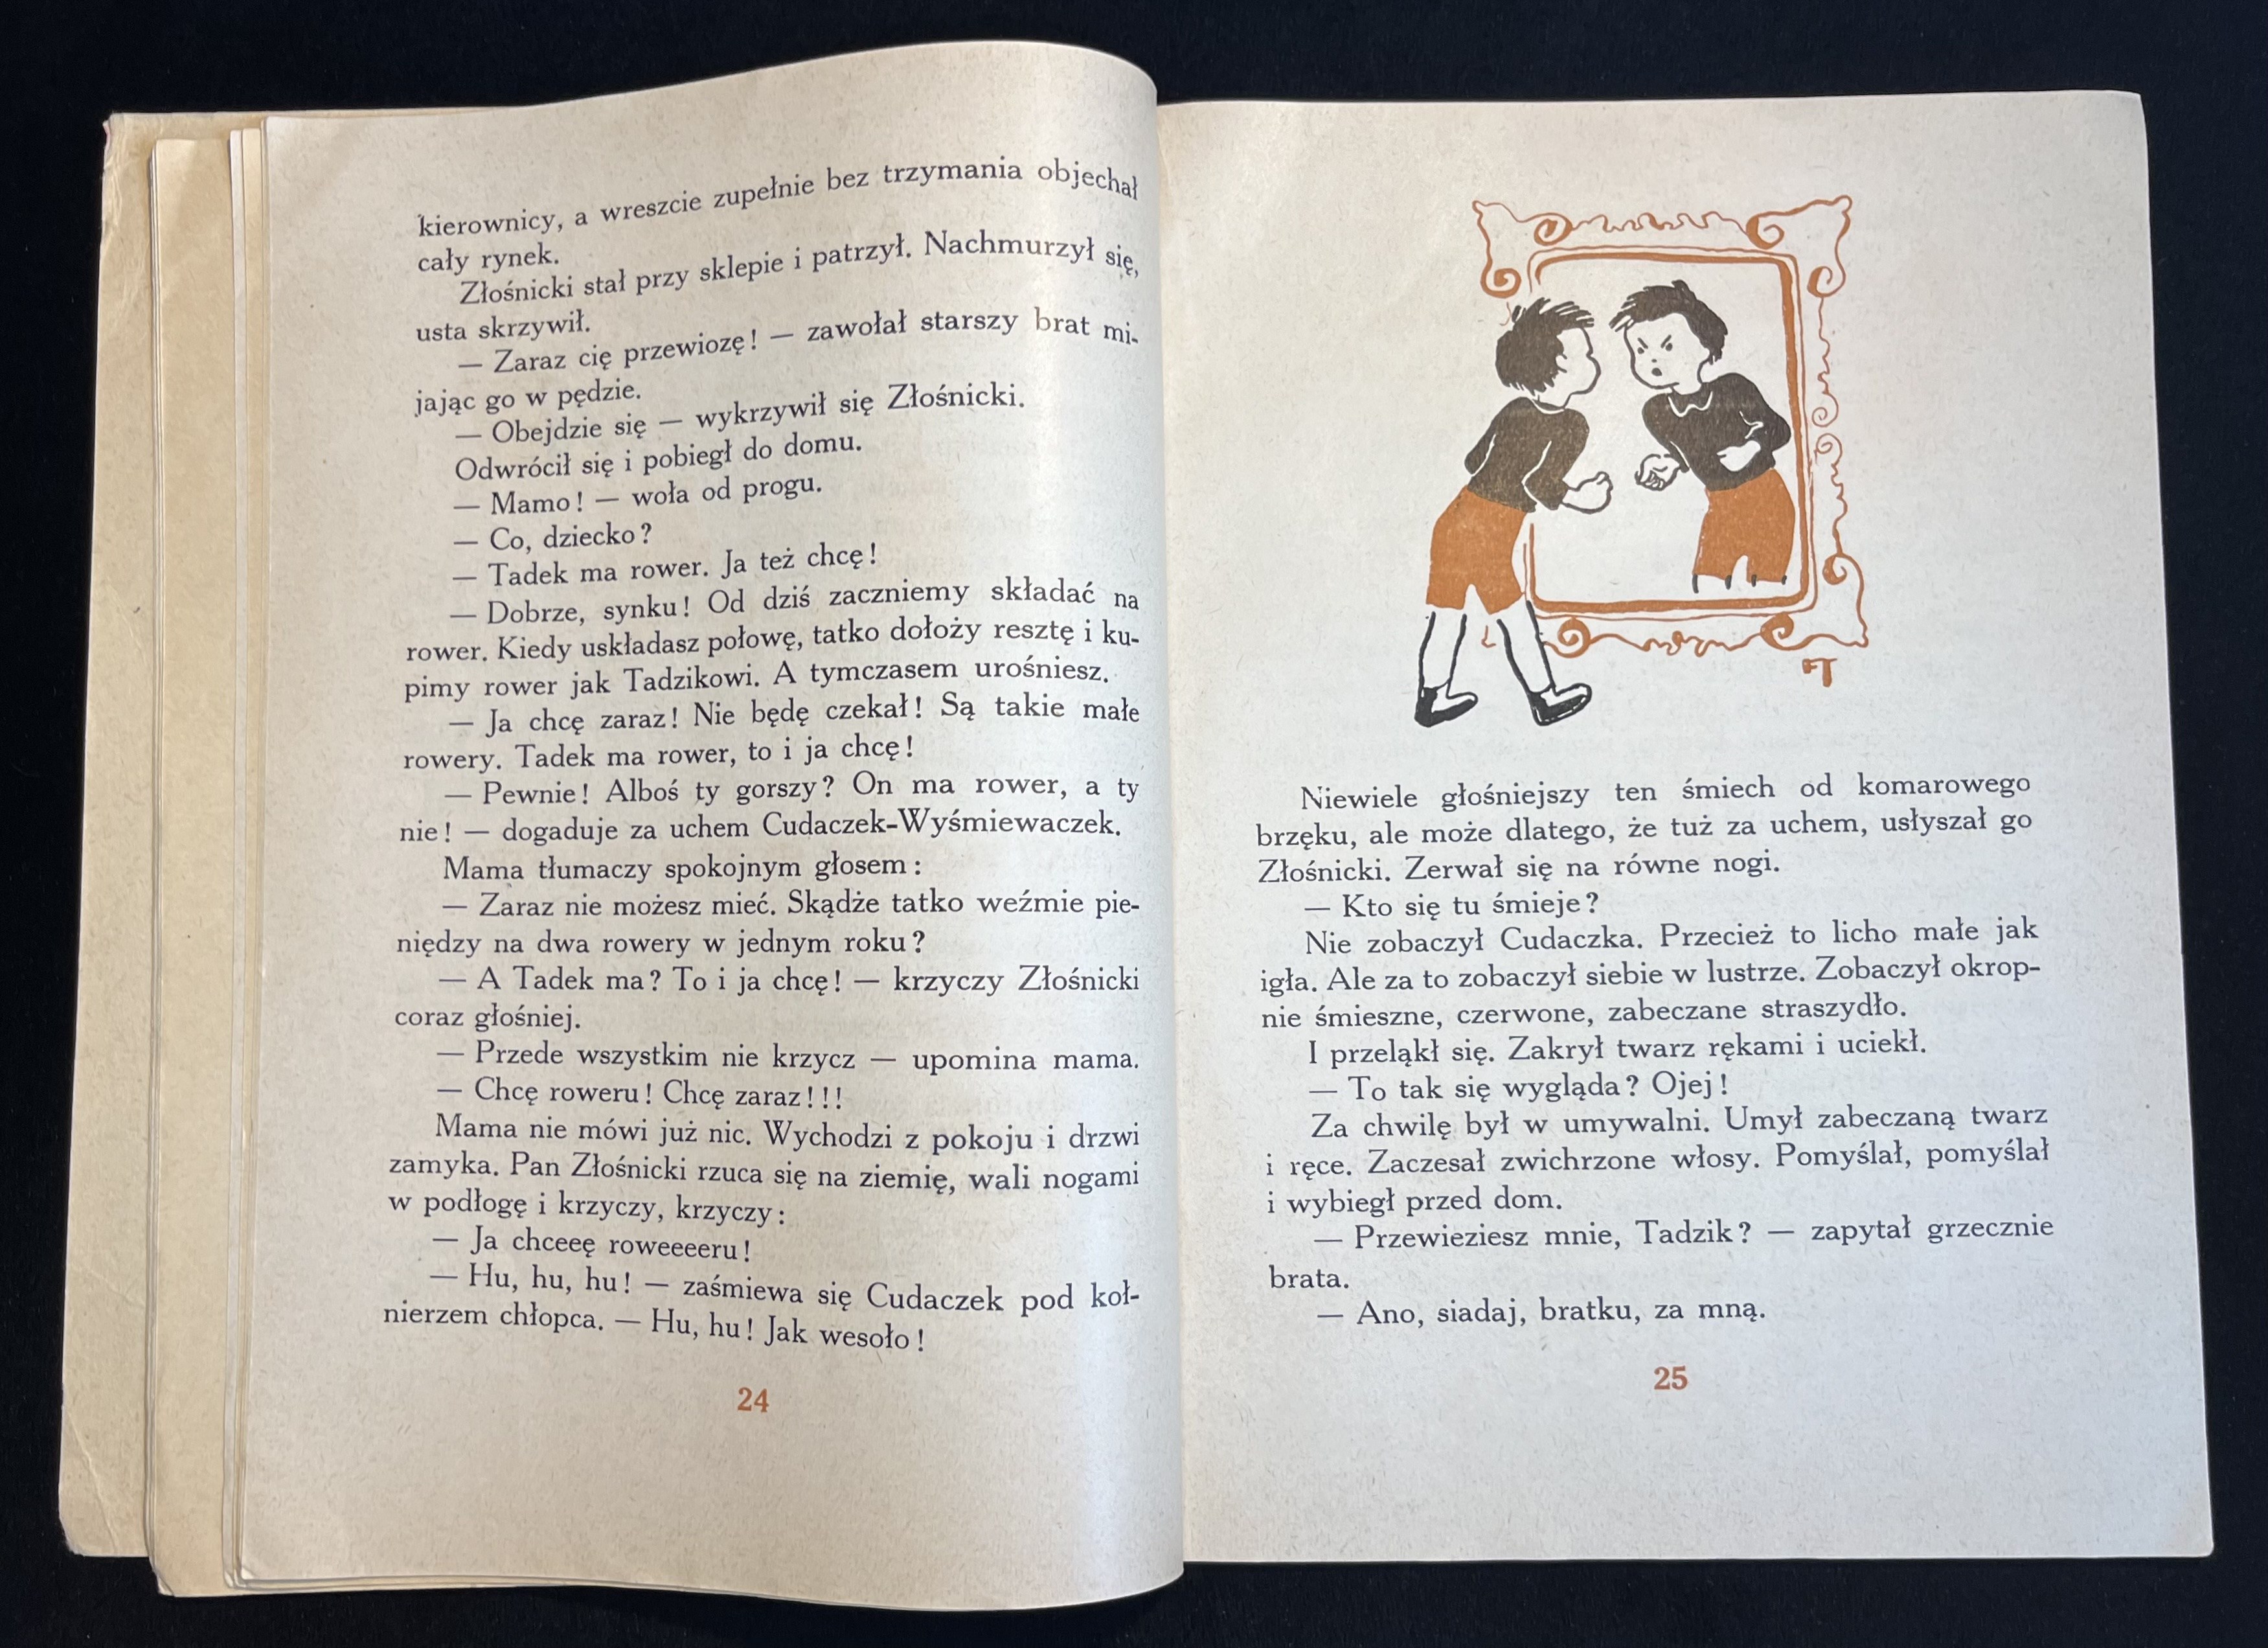 kierownicy, a wreszcie zupełnie bez trzymania objechał
cały rynek.
Złośnicki stał przy sklepie i patrzył. Nachmurzył się,
usta skrzywił.
— Zaraz cię przewiozę! — zawołał starszy brat mi-
jając go w pędzie.
— Obejdzie się — wykrzywił się Złośnicki.
Odwrócił się i pobiegł do domu.
— Mamo! — woła od progu.
— Co, dziecko?
— Tadek ma rower. Ja też chcę!
— Dobrze, synku! Od dziś zaczniemy składać na
rower. Kiedy uskładasz połowę, tatko dołoży resztę i ku-
pimy rower jak Tadzikowi. A tymczasem urośniesz.
— Ja chcę zaraz! Nie będę czekał! Są takie małe
rowery. Tadek ma rower, to i ja chcę!
— Pewnie! Alboś ty gorszy? On ma rower, a ty
nie! — dogaduje za uchem Cudaczek-Wyśmiewaczek.
Mama tłumaczy spokojnym głosem:
— Zaraz nie możesz mieć. Skądże tatko weźmie pie-
niędzy na dwa rowery w jednym roku?
— A Tadek ma? To i ja chcę! — krzyczy Złośnicki
coraz głośniej.
— Przede wszystkim nie krzycz — upomina mama.
— Chcę roweru! Chcę zaraz!!!
Mama nie mówi już nic. Wychodzi z pokoju i drzwi
zamyka. Pan Złośnicki rzuca się na ziemię, wali nogami
w podłogę i krzyczy, krzyczy:
— Ja chceeę roweeeeru!
— Hu, hu, hu! — zaśmiewa się Cudaczek pod koł-
nierzem chłopca. — Hu, hu! Jak wesoło!
24
FT
Niewiele głośniejszy ten śmiech od komarowego
brzęku, ale może dlatego, że tuż za uchem, usłyszał go
Złośnicki. Zerwał się na równe nogi.
— Kto się tu śmieje?
Nie zobaczył Cudaczka. Przecież to licho małe jak
igła. Ale za to zobaczył siebie w lustrze. Zobaczył okrop-
nie śmieszne, czerwone, zabeczane straszydło.
I przeląkł się. Zakrył twarz rękami i uciekł.
— To tak się wygląda? Ojej!
Za chwilę był w umywalni. Umył zabeczaną twarz
i ręce. Zaczesał zwichrzone włosy. Pomyślał, pomyślał
i wybiegł przed dom.
— Przewieziesz mnie, Tadzik? — zapytał grzecznie
brata.
— Ano, siadaj, bratku, za mną.
25